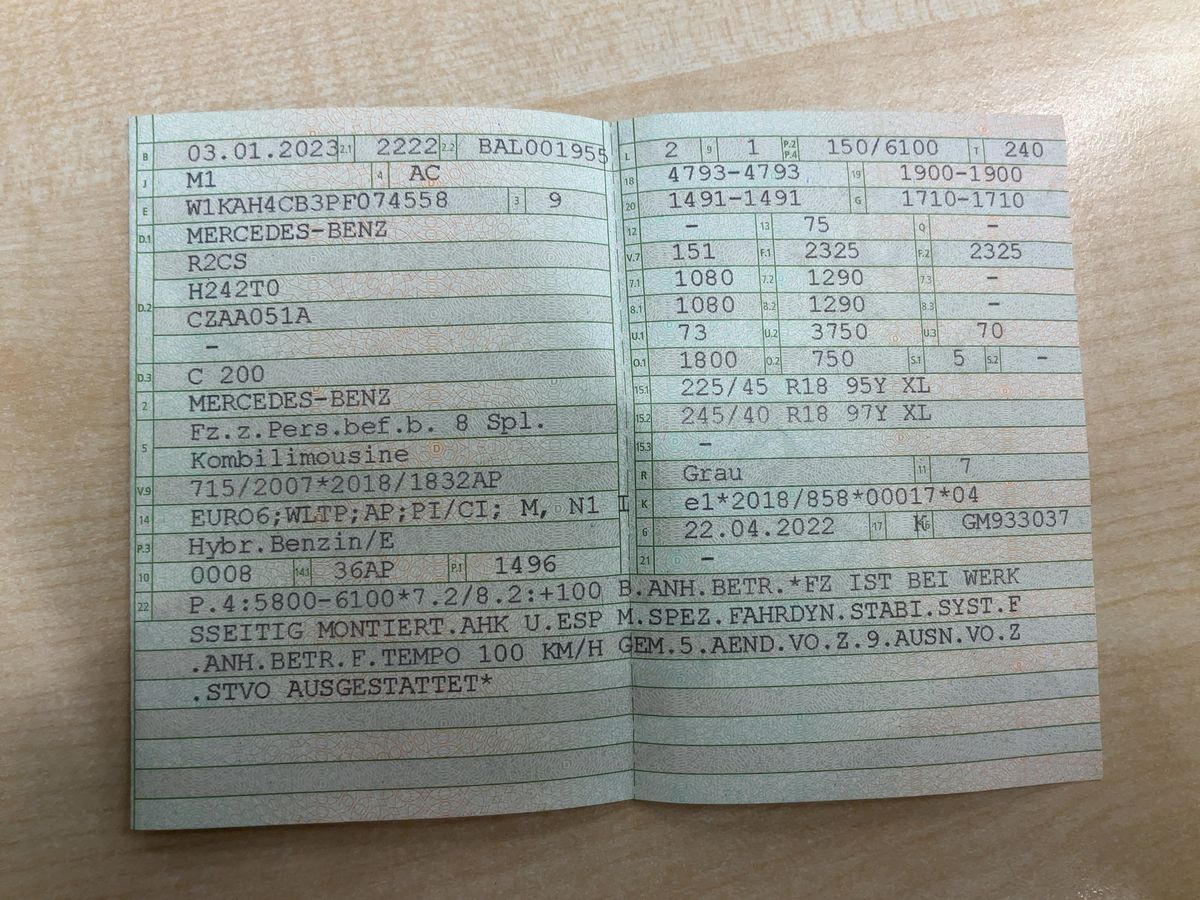 B 03.01.2023 2.1 2222 2.2 BAL001955
J M1 4 AC
E W1KAH4CB3PF074558 3 9
D.1 MERCEDES-BENZ
R2CS
D.2 H242T0
CZAA051A
-
D.3 C 200
2 MERCEDES-BENZ
5 Fz.z.Pers.bef.b. 8 Spl.
Kombilimousine
V.9 715/2007*2018/1832AP
14 EURO6;WLTP;AP;PI/CI; M, N1 I
P.3 Hybr.Benzin/E
10 0008 14.1 36AP P.1 1496
L 2 9 1 P.2 P.4 150/6100 T 240
18 4793-4793 19 1900-1900
20 1491-1491 G 1710-1710
12 - 13 75 Q -
V.7 151 F.1 2325 F.2 2325
7.1 1080 7.2 1290 7.3 -
8.1 1080 8.2 1290 8.3 -
U.1 73 U.2 3750 U.3 70
O.1 1800 O.2 750 S.1 5 S.2 -
15.1 225/45 R18 95Y XL
15.2 245/40 R18 97Y XL
15.3 -
R Grau 11 7
K e1*2018/858*00017*04
6 22.04.2022 17 K 16 GM933037
21 -
22 P.4:5800-6100*7.2/8.2:+100 B.ANH.BETR.*FZ IST BEI WERK
SSEITIG MONTIERT.AHK U.ESP M.SPEZ.FAHRDYN.STABI.SYST.F
.ANH.BETR.F.TEMPO 100 KM/H GEM.5.AEND.VO.Z.9.AUSN.VO.Z
.STVO AUSGESTATTET*